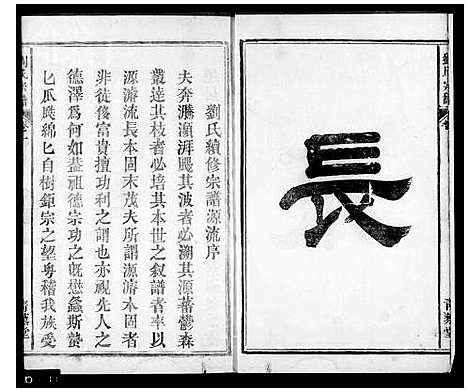 長
劉氏續修宗譜源流序
夫奔騰澒湃颺其波者必溯其源蕃鬱森
叢達其枝者必培其本世之敘譜者率以
源濬流長本固末茂夫所謂源濬本固者
非徒侈富貴擅功利之謂也亦視先人之
德澤爲何如葢祖德宗功之旣懋螽斯蟄
瓜瓞綿自樹鉅宗之望粵稽我族受